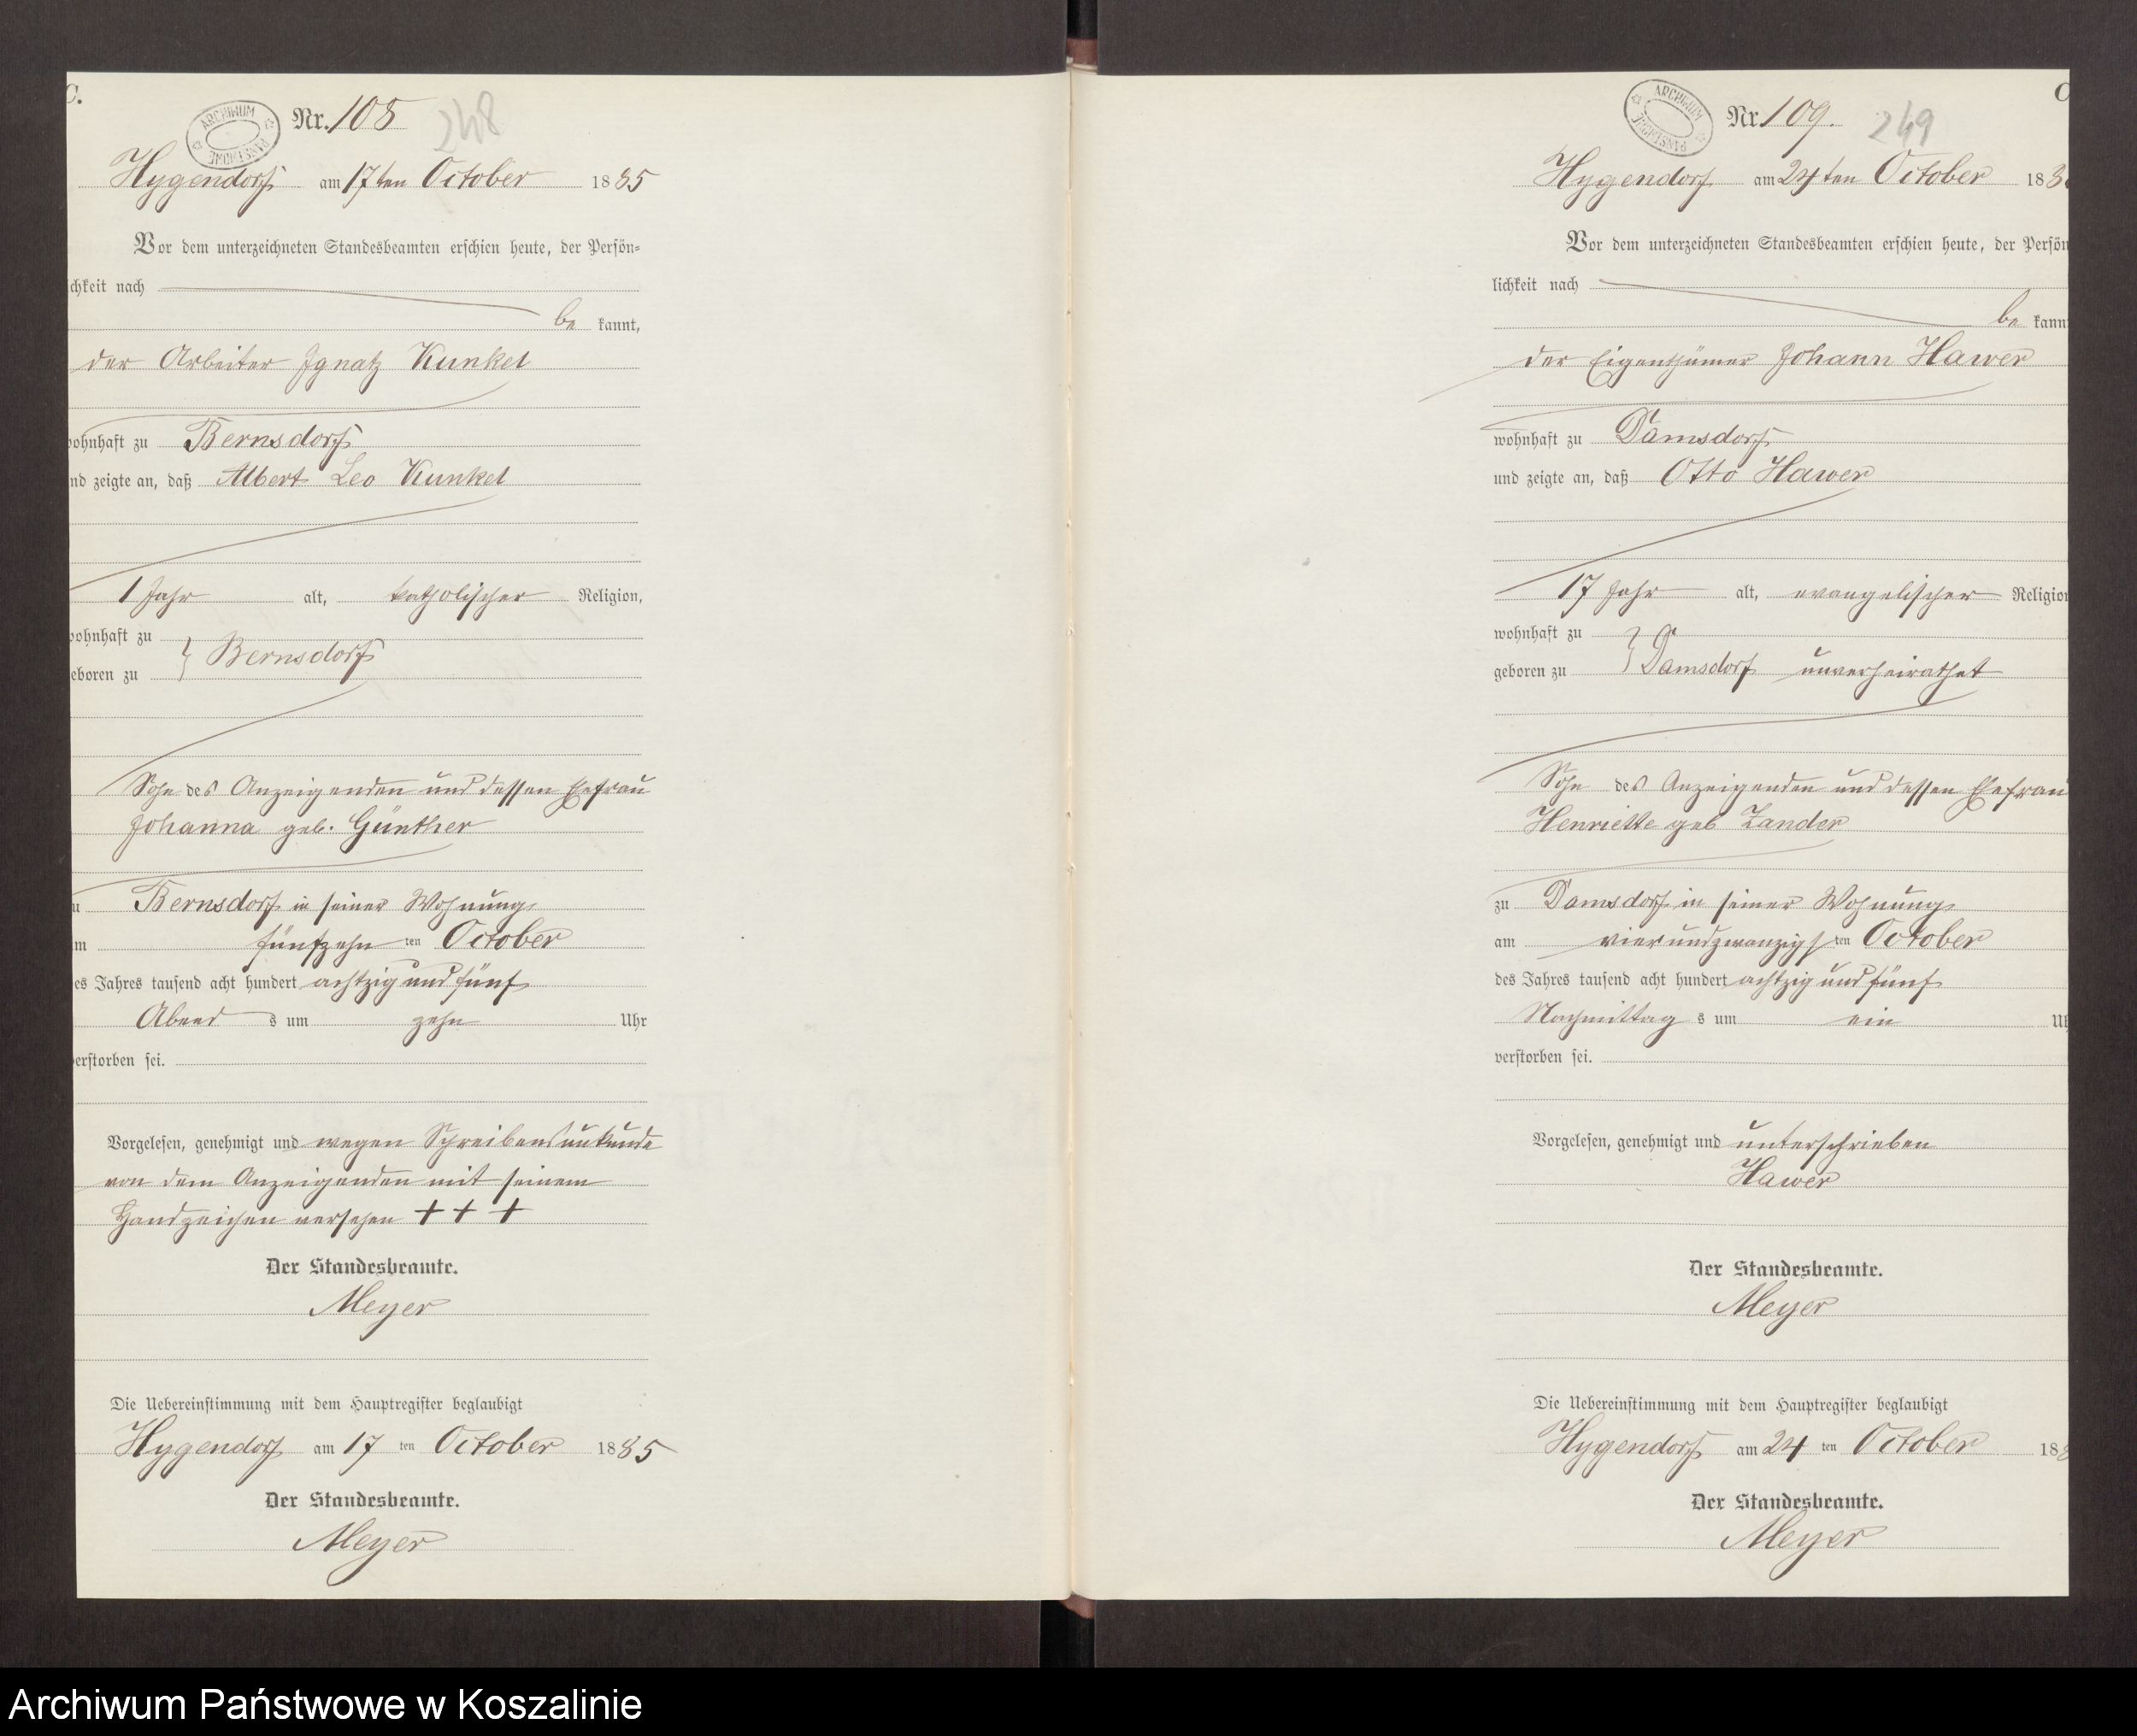 C.
ARCHIWUM PAŃSTWOWE
Nr. 108
248
Hygendorf am 17ten October 1885
Vor dem unterzeichneten Standesbeamten erschien heute, der Persön-
ichkeit nach
be kannt,
der Arbeiter Ignatz Kunkel
wohnhaft zu Bernsdorf
nd zeigte an, daß Albert Leo Kunkel
1 Jahr alt, katholischer Religion,
wohnhaft zu
eboren zu } Bernsdorf
Sohn des Anzeigenden und dessen Ehefrau
Johanna geb. Günther
u Bernsdorf in seiner Wohnung
m fünfzehn ten October
es Jahres tausend acht hundert achtzig und fünf
Abend s um zehn Uhr
verstorben sei.
Vorgelesen, genehmigt und wegen Schreibensunkunde
von dem Anzeigenden mit seinem
Handzeichen versehen + + +
Der Standesbeamte.
Meyer
Die Uebereinstimmung mit dem Hauptregister beglaubigt
Hygendorf am 17 ten October 1885
Der Standesbeamte.
Meyer
C
ARCHIWUM PAŃSTWOWE
Nr 109.
249
Hygendorf am 24ten October 188
Vor dem unterzeichneten Standesbeamten erschien heute, der Persön
lichkeit nach
be kann
der Eigenthümer Johann Hawer
wohnhaft zu Damsdorf
und zeigte an, daß Otto Hawer
17 Jahr alt, evangelischer Religion
wohnhaft zu
geboren zu } Damsdorf unverheirathet
Sohn des Anzeigenden und dessen Ehefrau
Henriette geb Zander
zu Damsdorf in seiner Wohnung
am vierundzwanzigs ten October
des Jahres tausend acht hundert achtzig und fünf
Nachmittag s um ein Uh
verstorben sei.
Vorgelesen, genehmigt und unterschrieben
Hawer
Der Standesbeamte.
Meyer
Die Uebereinstimmung mit dem Hauptregister beglaubigt
Hygendorf am 24 ten October 188
Der Standesbeamte.
Meyer
Archiwum Państwowe w Koszalinie